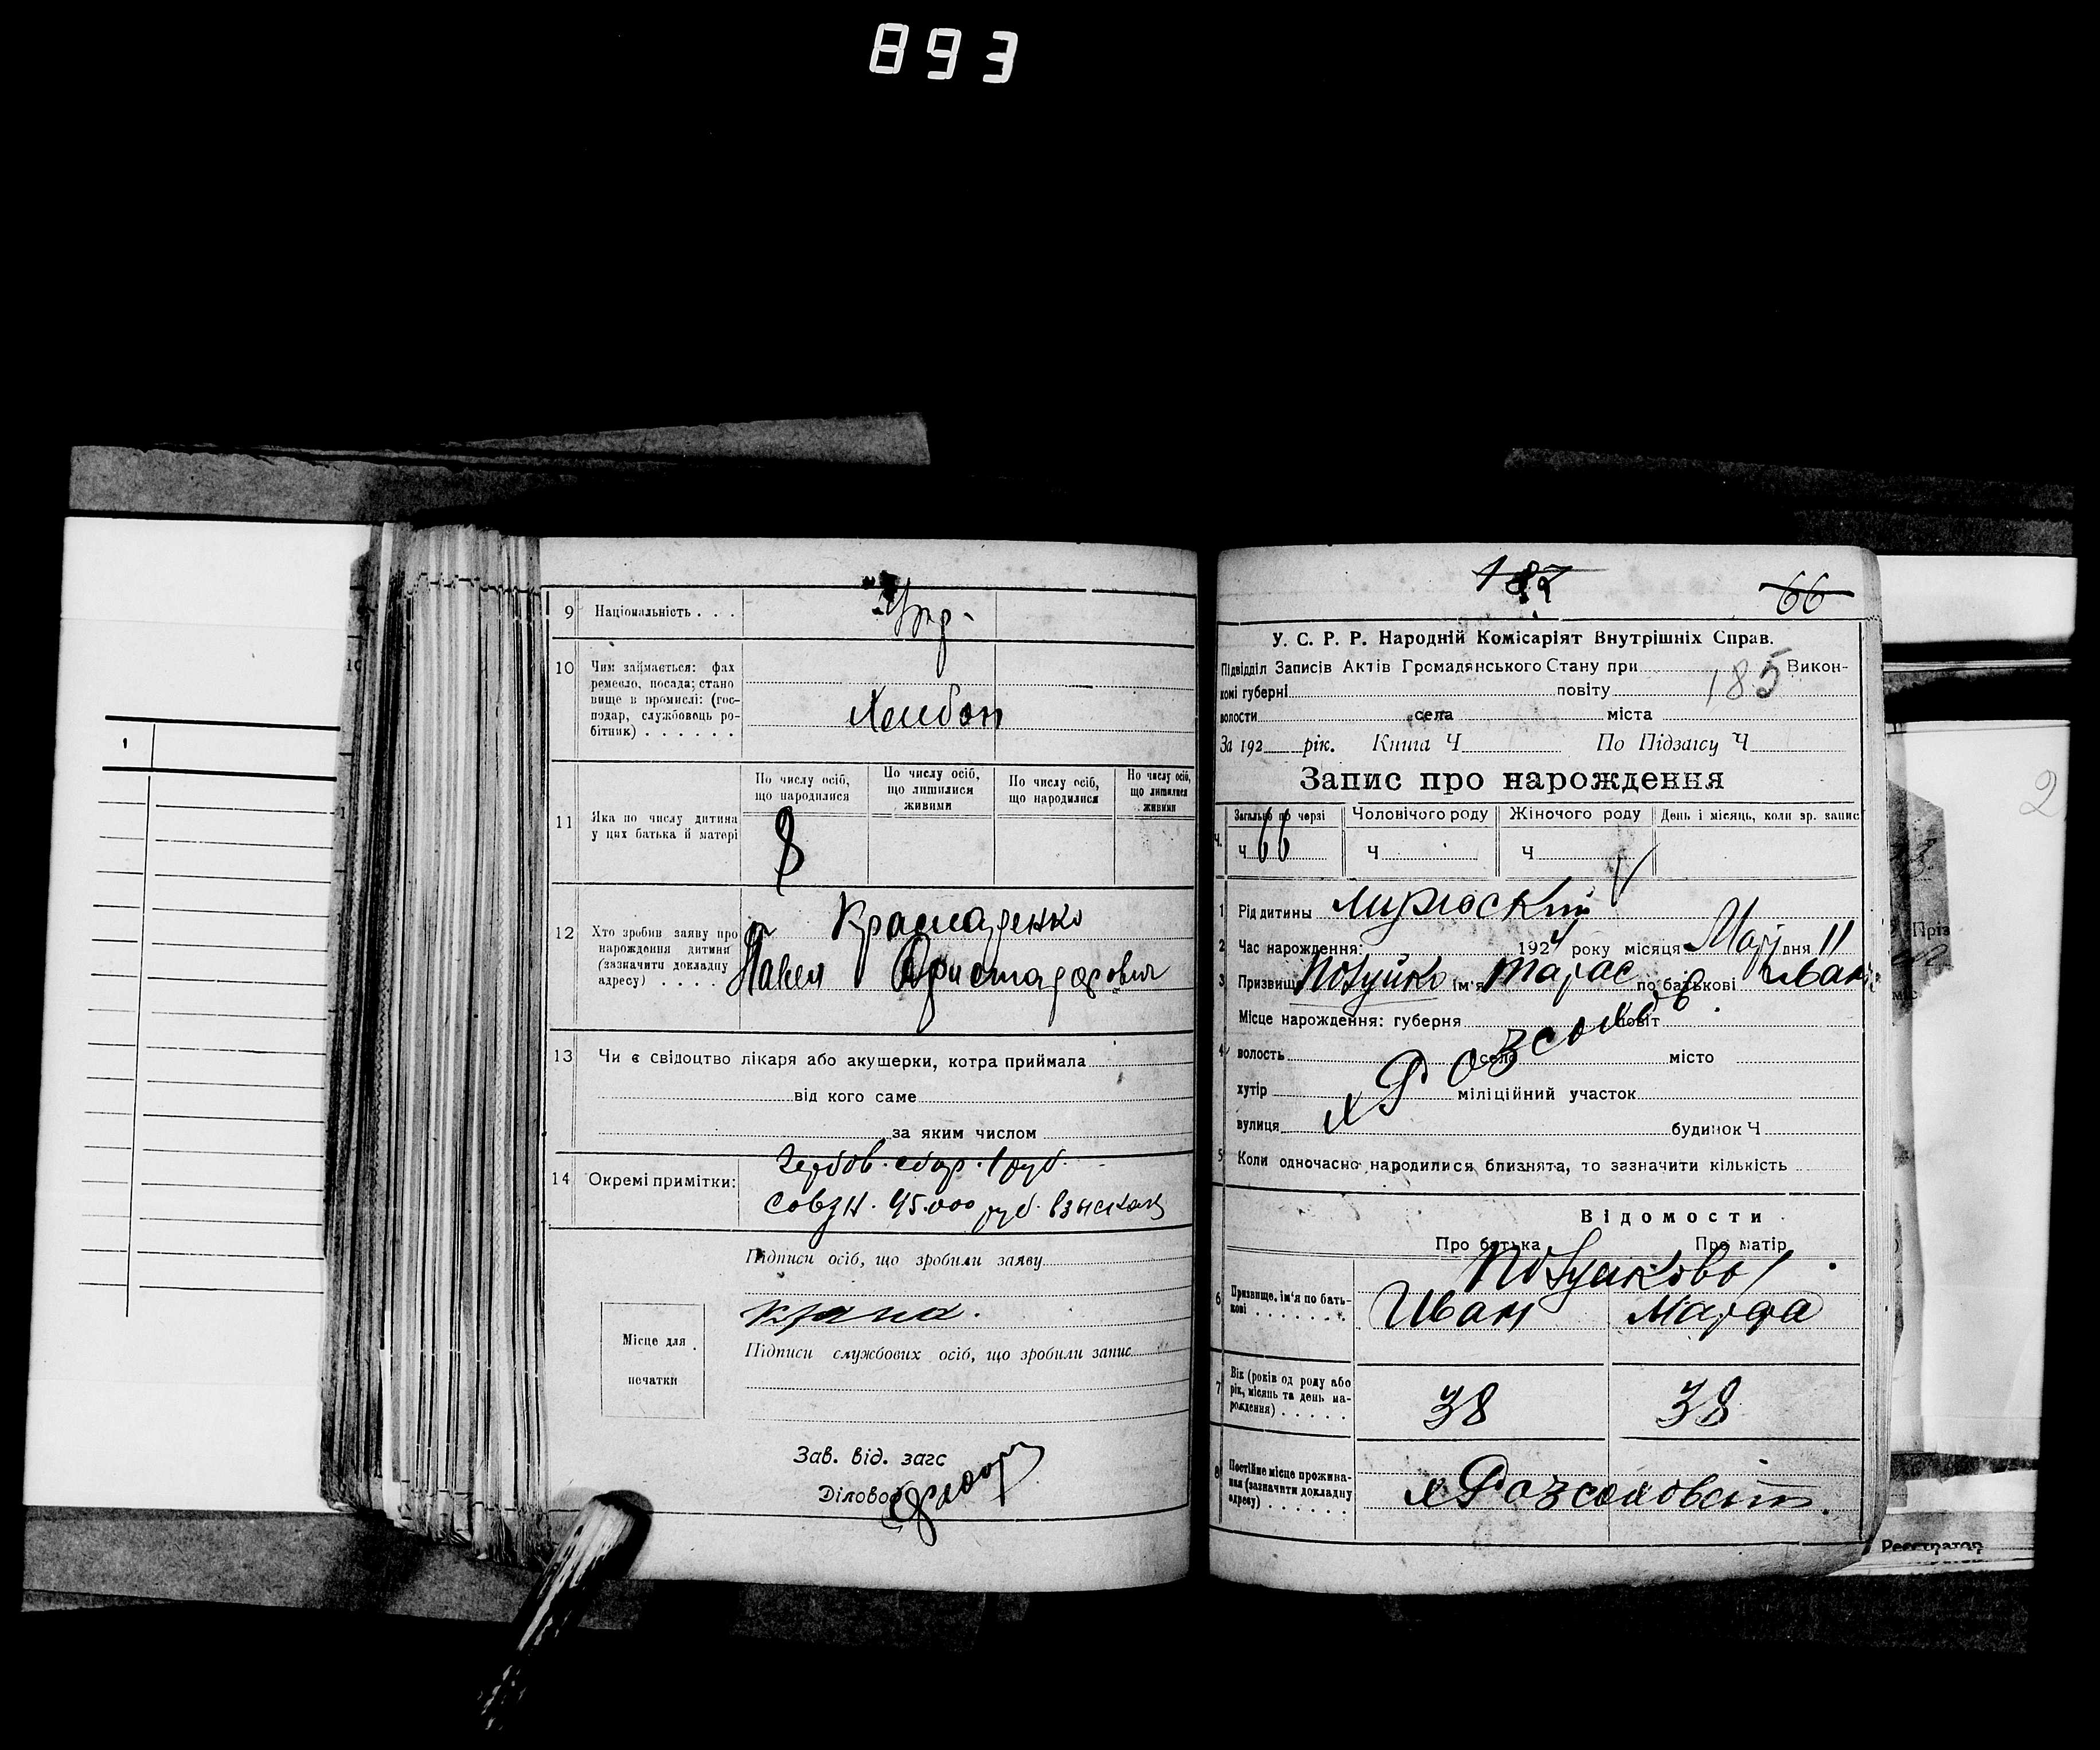 893
9 Національність . . .
Укр.
10 Чим займається: фах
ремесло, посада; стано
вище в промислі: (гос-
подар, службовець ро-
бітник) . . . . . .
Хлибоп
11 Яка по числу дитина
у цих батька й матері
По числу осіб,
що народилися
По числу осіб,
що лишилися
живими
По числу осіб,
що народилися
Но числу осіб,
що лишилися
живими
8
12 Хто зробив заяву про
нарождення дитини
(зазначити докладну
адресу) . . . .
Павел
13 Чи є свідоцтво лікаря або акушерки, котра приймала
від кого саме
за яким числом
14 Окремі примітки:
Гербов. сбор. 1 руб.
совзн. 45.000 руб. взыскан
Підписи осіб, що зробили заяву
Підписи службових осіб, що зробили запис
Місце для
печатки
Зав. від. загс
Діловод
187
66
У. С. Р. Р. Народній Комісаріят Внутрішніх Справ.
Підвідділ Записів Актів Громадянського Стану при 185 Викон-
комі губерні повіту
волости села міста
За 192 рік. Книга Ч По Підзагсу Ч
Запис про нарождення
Ч. Загально по черзі Чоловічого роду Жіночого роду День і місяць, коли зр. запис
Ч 66 Ч Ч
1 Рід дитины мужской
2 Час нарождення: 1924 року місяця Мар дня 11
3 Призвище ім'я Тарас по батькові Иван
Місце нарождення: губерня повіт
4 волость село місто
хутір міліційний участок
вулиця будинок Ч
5 Коли одночасно народилися близнята, то зазначити кількість
Відомости
Про батька Про матір
6 Призвище, ім'я по бать-
кові . . . . . .
Иван Марфа
7 Вік (років од роду або
рік, місяць та день на-
рождення) . . . . .
38 38
8 Постійне місце прожива-
ння (зазначити докладну
адресу) . . . . .
Реєстратор
2